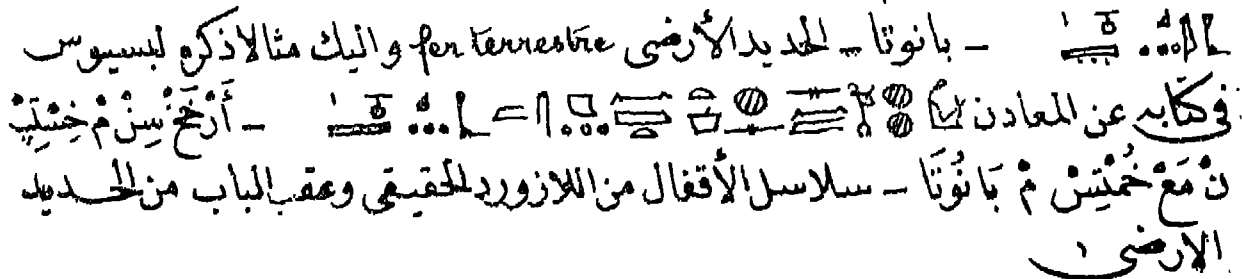 ـ بانوتا ـ الحديد الأرضى fer terrestre واليك مثالا ذكره لبسيوس
فى كتابه عن المعادن ـ أَرْخَخْ سِنْ مْ خِسْتِبْ
نْ مَعْ خُمْتِسْ مْ بَا نُوتَا ـ سلاسل الأقفال من اللازورد الحقيقى وعقب الباب من الحديد
الارضى ١